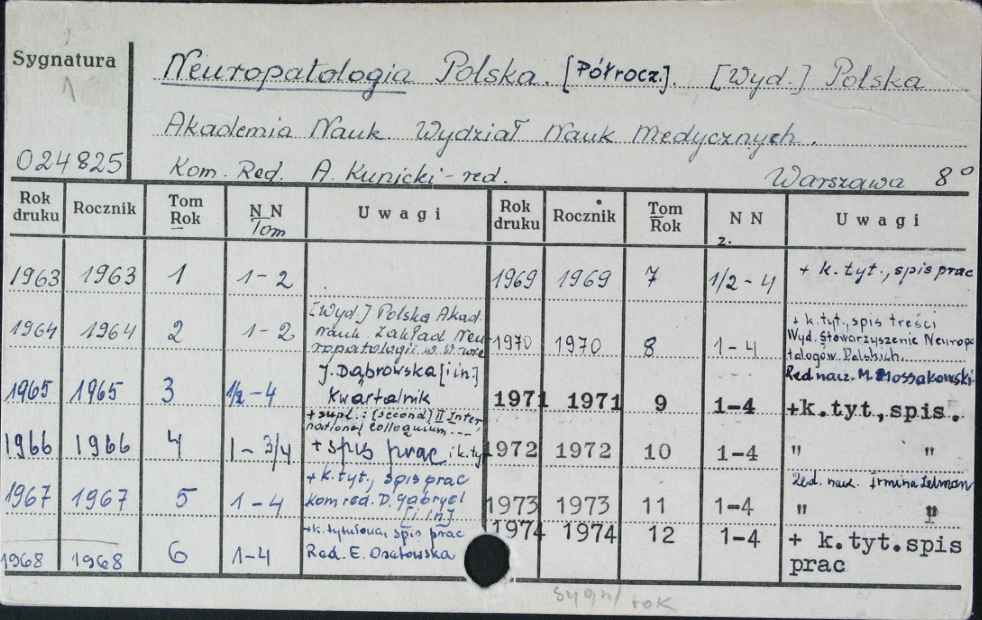 Sygnatura
Neuropatologia Polska. [Półrocz.]. [Wyd.] Polska
Akademia Nauk. Wydział Nauk Medycznych.
024825 Kom. Red. A. Kunicki - red. Warszawa 8°
Rok druku Rocznik Tom Rok NN Tom Uwagi Rok druku Rocznik Tom Rok NN z. Uwagi
1963 1963 1 1-2
1964 1964 2 1-2 [Wyd.] Polska Akad.
Nauk Zakład Neu
ropatologii w W-wie
1965 1965 3 1/2-4 J. Dąbrowska [i in.]
Kwartalnik
1966 1966 4 1-3/4 + supl.: (second) II Inter
national colloquium ---
+ spis prac i k.ty
1967 1967 5 1-4 + k.tyt., spis prac
kom red. D. Gabryel
[i in.]
1968 1968 6 1-4 +k. tytułowa, spis prac
Red. E. Osetowska
1969 1969 7 1/2-4 + k. tyt., spis prac
1970 1970 8 1-4 + k.tyt., spis treści
Wyd. Stowarzyszenie Neuropa
tologów Polskich.
Red nacz. M. Mossakowski
1971 1971 9 1-4 +k.tyt., spis.
1972 1972 10 1-4 " "
1973 1973 11 1-4 Red. nauk. Irmina
" "
1974 1974 12 1-4 + k.tyt.spis
prac
sygn/ rok